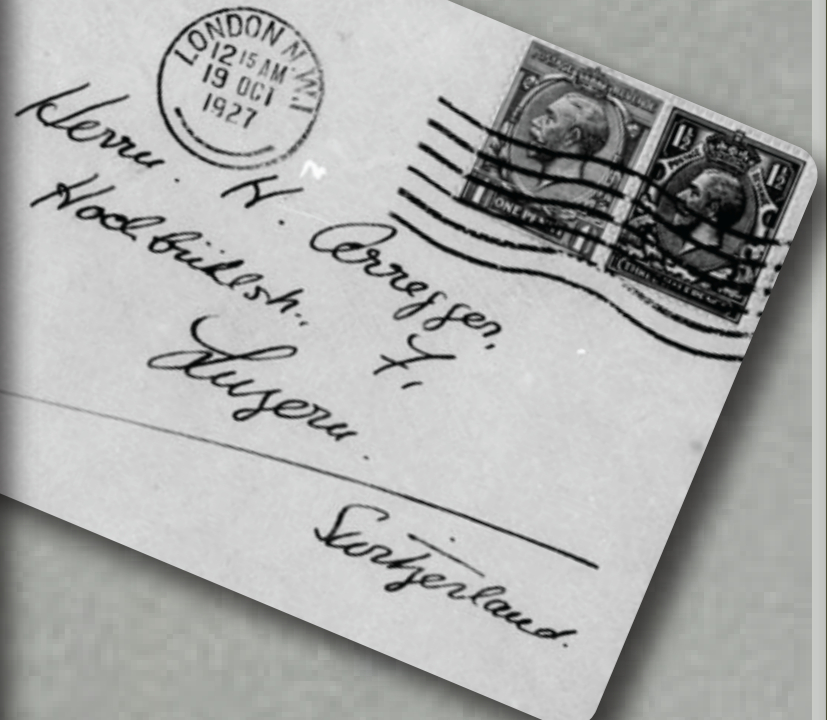 LONDON N.W.1
12 15 AM
19 OCT
1927
POSTAGE REVENUE
ONE PENNY
1 1
1½ 1½
POSTAGE REVENUE
THREE HALF PENCE
Herrn. H. Arregger,
Hochbühlstr. 7,
Luzern.
Switzerland.